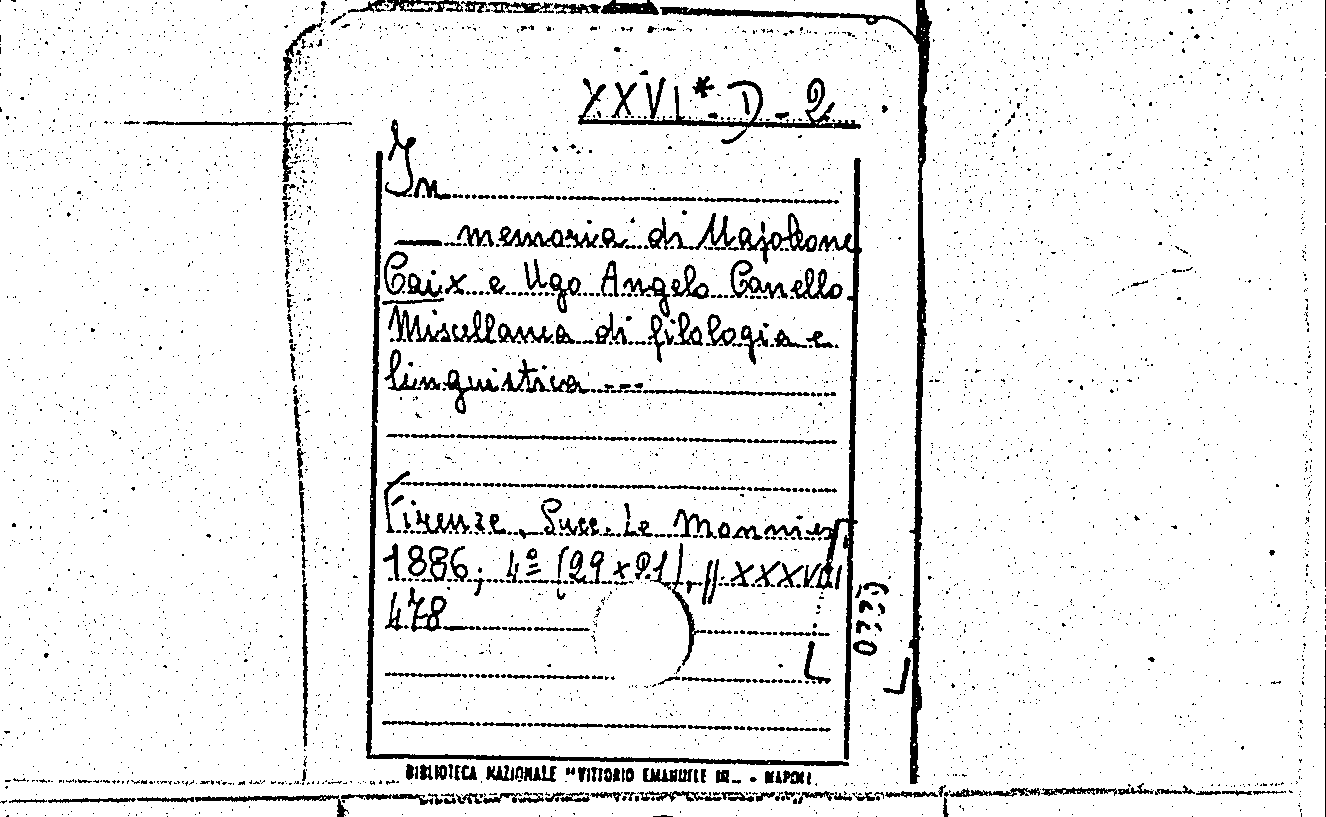 XXVI* - D - 2
In
memoria di Napoleone
Caix e Ugo Angelo Canello.
Miscellanea di filologia e
linguistica ---
Firenze, Succ. Le Monnier,
1886; 4º (29x21), pp. XXXVIII
478
BIBLIOTECA NAZIONALE "VITTORIO EMANUELE III" - NAPOLI